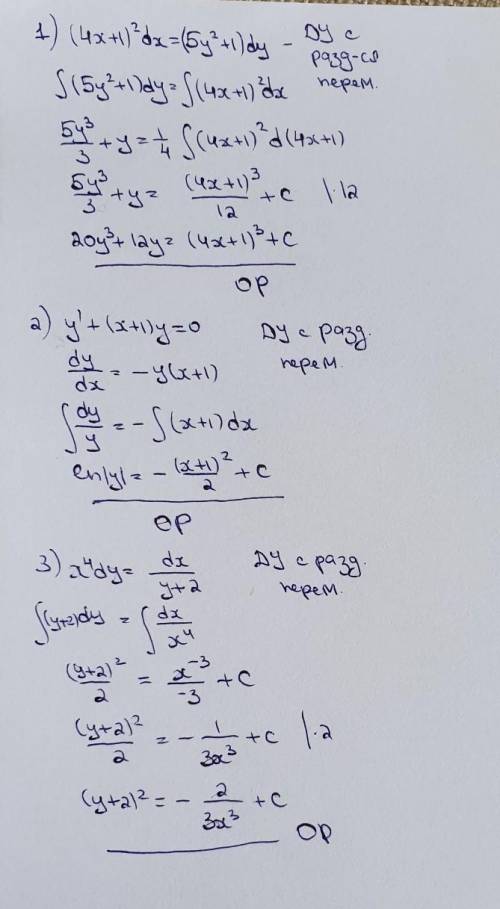 1) (4x+1)²dx=(5y²+1)dy – ДУ с
разд-ся
перем.
∫(5y²+1)dy=∫(4x+1)²dx
5y³/3 + y = 1/4 ∫(4x+1)²d(4x+1)
5y³/3 + y = (4x+1)³/12 + C |·12
20y³+12y = (4x+1)³+C
ОР
2) y'+(x+1)y=0 ДУ с разд.
перем.
dy/dx = -y(x+1)
∫dy/y = -∫(x+1)dx
ln|y| = -(x+1)²/2 + C
ОР
3) x⁴dy = dx/(y+2) ДУ с разд.
перем.
∫(y+2)dy = ∫dx/x⁴
(y+2)²/2 = x⁻³/-3 + C
(y+2)²/2 = -1/3x³ + C |·2
(y+2)² = -2/3x³ + C
ОР